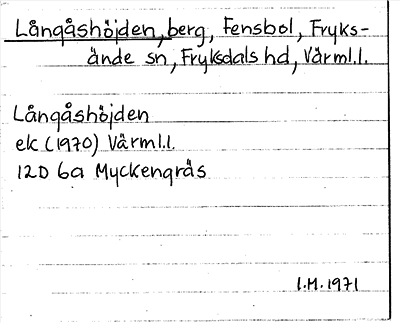 Långåshöjden, berg, Fensbol, Fryks-
ände sn, Fryksdals hd, Värml.l.
Långåshöjden
ek (1970) Värml.l.
12D 6a Myckengräs
I.M. 1971